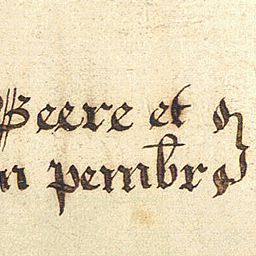 Beere et
n pembr